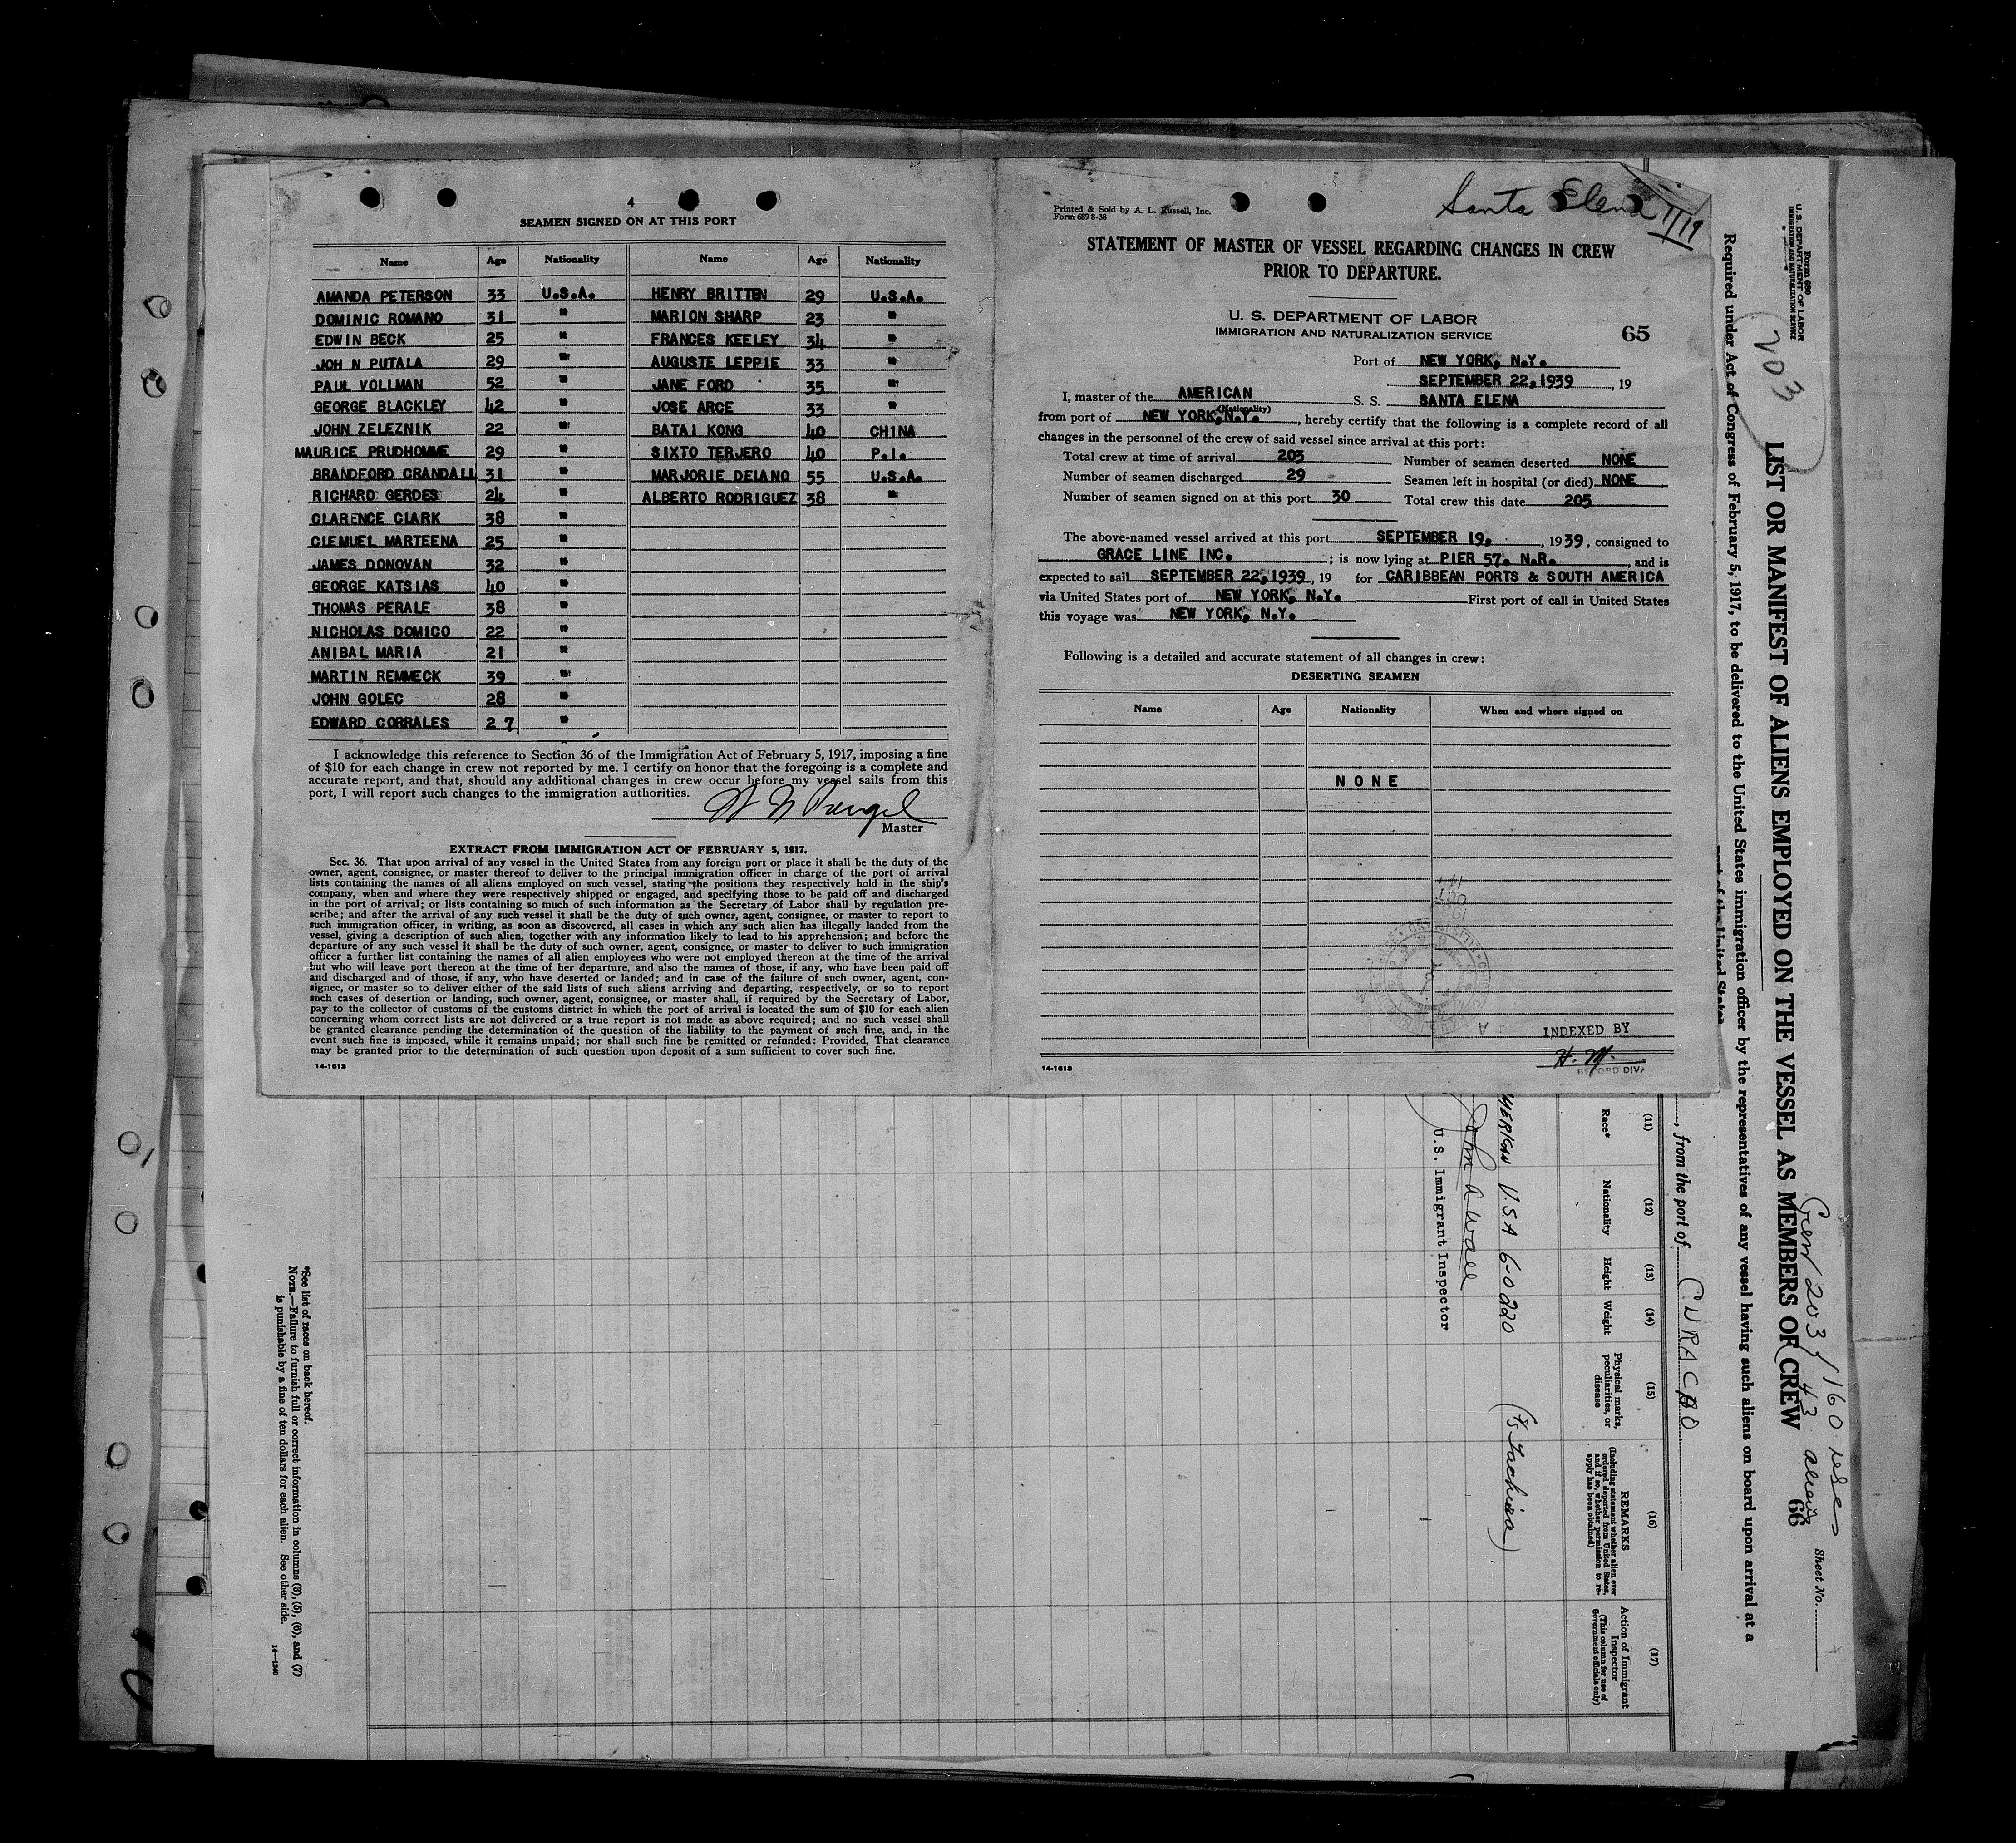 4
SEAMEN SIGNED ON AT THIS PORT
Name Age Nationality Name Age Nationality
AMANDA PETERSON 33 U.S.A. HENRY BRITTEN 29 U.S.A.
DOMINIC ROMANO 31 " MARION SHARP 23 "
EDWIN BECK 25 " FRANCES KEELEY 34 "
JOH N PUTALA 29 " AUGUSTE LEPPIE 33 "
PAUL VOLLMAN 52 " JANE FORD 35 "
GEORGE BLACKLEY 42 " JOSE ARCE 33 "
JOHN ZELEZNIK 22 " BATAI KONG 40 CHINA
MAURICE PRUDHOMME 29 " SIXTO TERJERO 40 P.I.
BRANDFORD CRANDALL 31 " MARJORIE DELANO 55 U.S.A.
RICHARD GERDES 24 " ALBERTO RODRIGUEZ 38 "
CLARENCE CLARK 38 "
CLEMUEL MARTEENA 25 "
JAMES DONOVAN 32 "
GEORGE KATSIAS 40 "
THOMAS PERALE 38 "
NICHOLAS DOMICO 22 "
ANIBAL MARIA 21 "
MARTIN REMMECK 39 "
JOHN GOLEC 28 "
EDWARD CORRALES 2 7 "
I acknowledge this reference to Section 36 of the Immigration Act of February 5, 1917, imposing a fine
of $10 for each change in crew not reported by me. I certify on honor that the foregoing is a complete and
accurate report, and that, should any additional changes in crew occur before my vessel sails from this
port, I will report such changes to the immigration authorities.
Master
EXTRACT FROM IMMIGRATION ACT OF FEBRUARY 5, 1917.
Sec. 36. That upon arrival of any vessel in the United States from any foreign port or place it shall be the duty of the
owner, agent, consignee, or master thereof to deliver to the principal immigration officer in charge of the port of arrival
lists containing the names of all aliens employed on such vessel, stating the positions they respectively hold in the ship's
company, when and where they were respectively shipped or engaged, and specifying those to be paid off and discharged
in the port of arrival; or lists containing so much of such information as the Secretary of Labor shall by regulation pre-
scribe; and after the arrival of any such vessel it shall be the duty of such owner, agent, consignee, or master to report to
such immigration officer, in writing, as soon as discovered, all cases in which any such alien has illegally landed from the
vessel, giving a description of such alien, together with any information likely to lead to his apprehension; and before the
departure of any such vessel it shall be the duty of such owner, agent, consignee, or master to deliver to such immigration
officer a further list containing the names of all alien employees who were not employed thereon at the time of the arrival
but who will leave port thereon at the time of her departure, and also the names of those, if any, who have been paid off
and discharged and of those, if any, who have deserted or landed; and in case of the failure of such owner, agent, con-
signee, or master so to deliver either of the said lists of such aliens arriving and departing, respectively, or so to report
such cases of desertion or landing, such owner, agent, consignee, or master shall, if required by the Secretary of Labor,
pay to the collector of customs of the customs district in which the port of arrival is located the sum of $10 for each alien
concerning whom correct lists are not delivered or a true report is not made as above required; and no such vessel shall
be granted clearance pending the determination of the question of the liability to the payment of such fine, and, in the
event such fine is imposed, while it remains unpaid; nor shall such fine be remitted or refunded: Provided, That clearance
may be granted prior to the determination of such question upon deposit of a sum sufficient to cover such fine.
14-1613
Printed & Sold by A. L. Russell, Inc.
Form 689 8-38
Santa Elena 9/19
STATEMENT OF MASTER OF VESSEL REGARDING CHANGES IN CREW
PRIOR TO DEPARTURE.
U. S. DEPARTMENT OF LABOR
IMMIGRATION AND NATURALIZATION SERVICE
65
Port of NEW YORK, N.Y.
SEPTEMBER 22, 1939, 19
I, master of the AMERICAN S. S. SANTA ELENA
(Nationality)
from port of NEW YORK, N.Y., hereby certify that the following is a complete record of all
changes in the personnel of the crew of said vessel since arrival at this port:
Total crew at time of arrival 203 Number of seamen deserted NONE
Number of seamen discharged 29 Seamen left in hospital (or died) NONE
Number of seamen signed on at this port 30 Total crew this date 205
The above-named vessel arrived at this port SEPTEMBER 19, , 1939, consigned to
GRACE LINE INC. ; is now lying at PIER 57. N.R. , and is
expected to sail SEPTEMBER 22, 1939, 19 for CARIBBEAN PORTS & SOUTH AMERICA
via United States port of NEW YORK, N.Y. First port of call in United States
this voyage was NEW YORK, N.Y.
Following is a detailed and accurate statement of all changes in crew:
DESERTING SEAMEN
Name Age Nationality When and where signed on
NONE
INDEXED BY
H. M.
RECORD DIV.
14-1613
Form 680
U. S. DEPARTMENT OF LABOR
IMMIGRATION AND NATURALIZATION SERVICE
203
LIST OR MANIFEST OF ALIENS EMPLOYED ON THE VESSEL AS MEMBERS OF CREW
Crew 203 160 USC
43 aliens
66
Sheet No.
Required under Act of Congress of February 5, 1917, to be delivered to the United States immigration officer by the representatives of any vessel having such aliens on board upon arrival at a
port of the United States
, from the port of CURACAO
(11) (12) (13) (14) (15) (16) (17)
Race* Nationality Height Weight Physical marks, peculiarities, or disease
REMARKS
(Including statement whether alien ever ordered deported from United States, and if so, whether permission to re-apply has been obtained)
Action of Immigrant Inspector
(This column for use of Government officials only)
MERICAN U.S.A 6-0 220
John A Wall
U.S. Immigrant Inspector
*See list of races on back hereof.
NOTE.—Failure to furnish full or correct information in columns (3), (5), (6), and (7)
is punishable by a fine of ten dollars for each alien. See other side.
14—1240